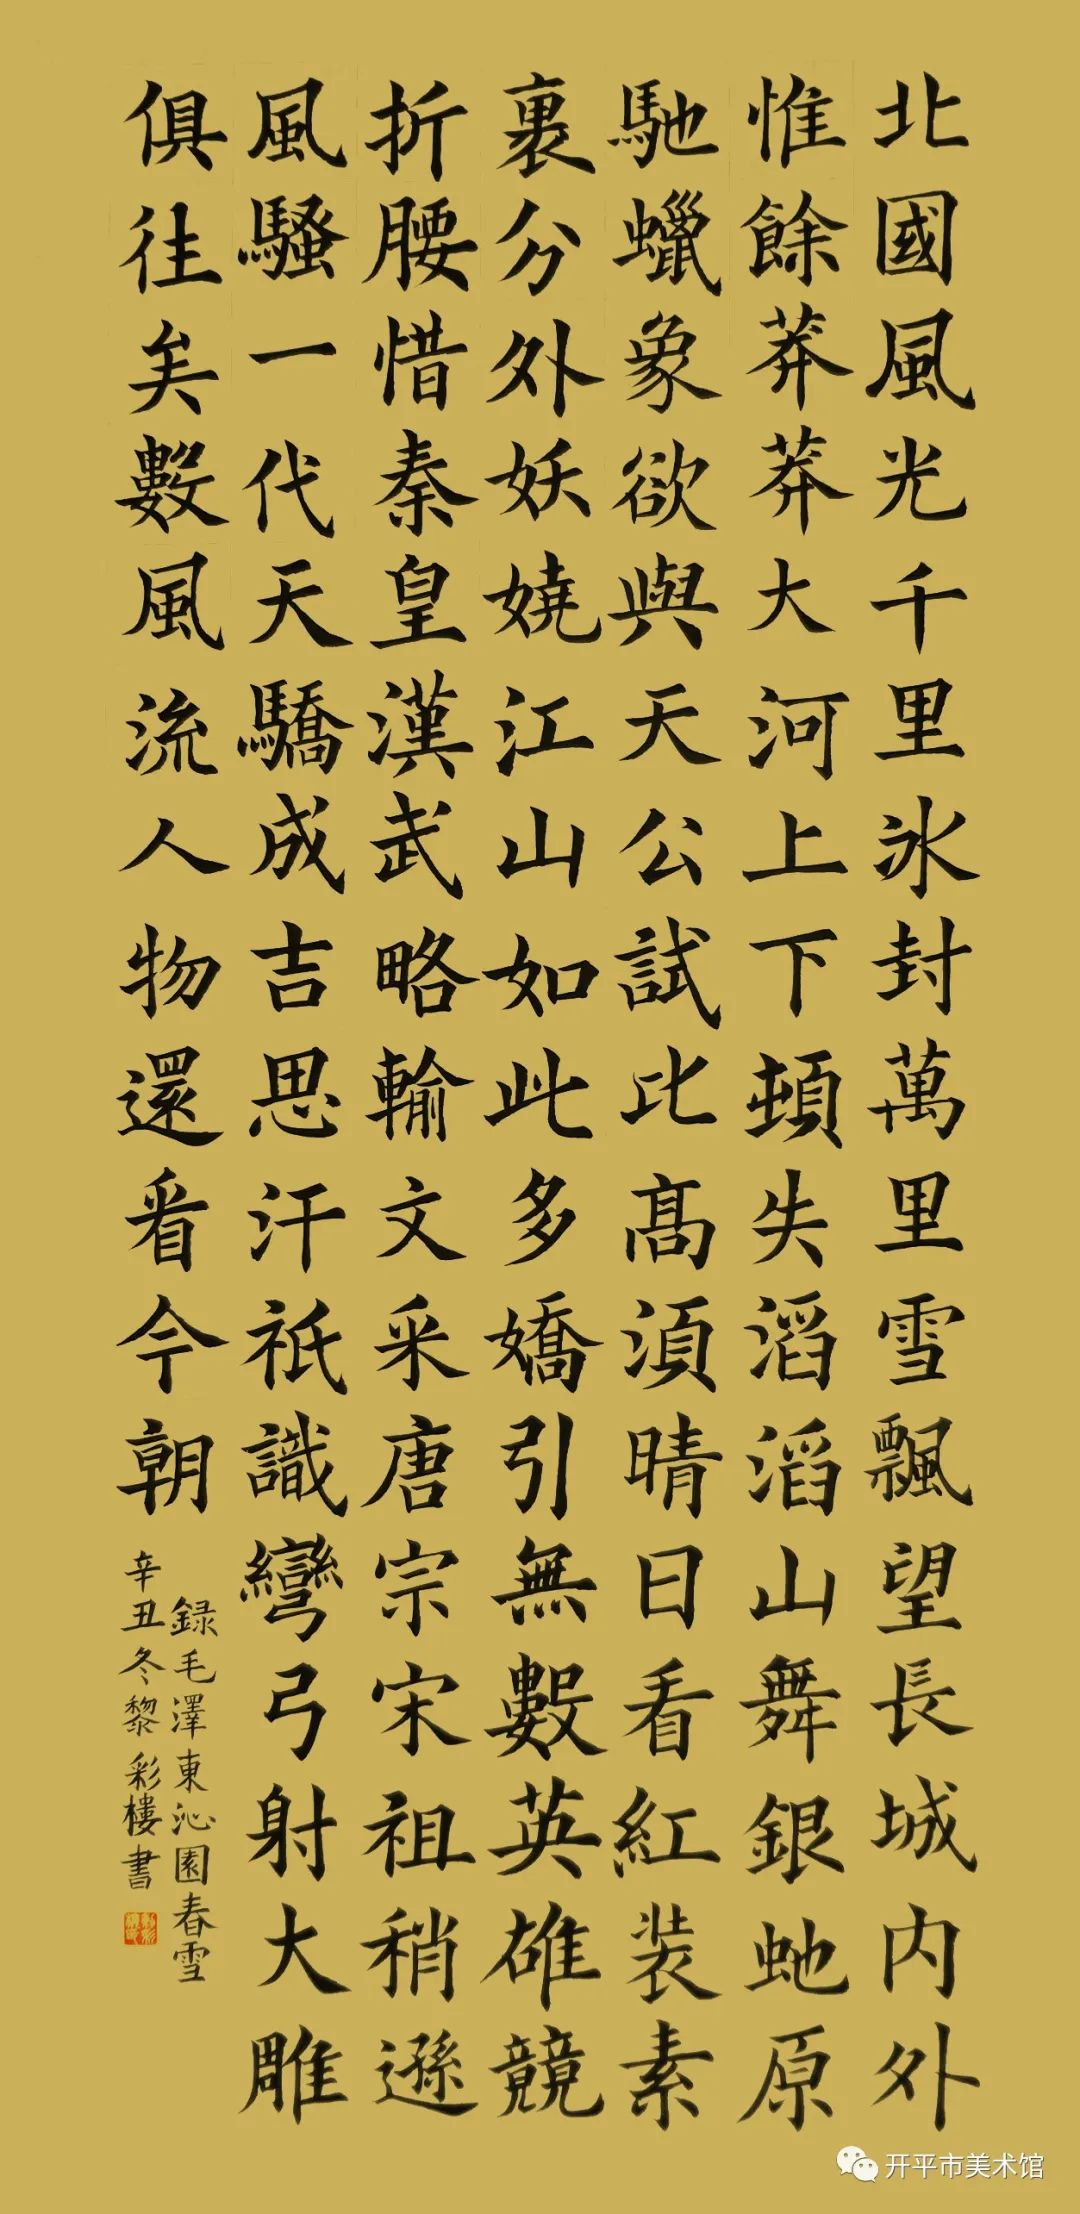 北國風光千里冰封萬里雪飄望長城内外
惟餘莽莽大河上下頓失滔滔山舞銀虵原
馳蠟象欲與天公試比髙湏晴日看紅装素
裹分外妖嬈江山如此多嬌引無數英雄競
折腰惜秦皇漢武略輸文采唐宗宋祖稍遜
風騷一代天驕成吉思汗祇識彎弓射大雕
俱往矣數風流人物還看今朝
録毛澤東沁園春雪
辛丑冬黎彩樓書
开平市美术馆